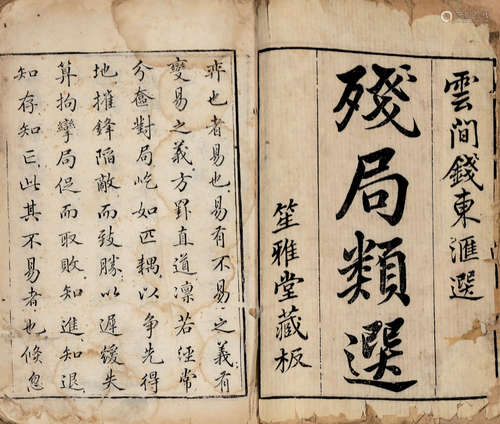 雲間錢東滙選
殘局類選
笙雅堂藏板
弈也者易也易有不易之義有
變易之義方罫直道凛若經常
分奩對局屹如匹耦以争先得
地摧鋒陷敵而致勝以遲緩失
算拘攣局促而取敗知進知退
知存知亡此其不易者也倏忽